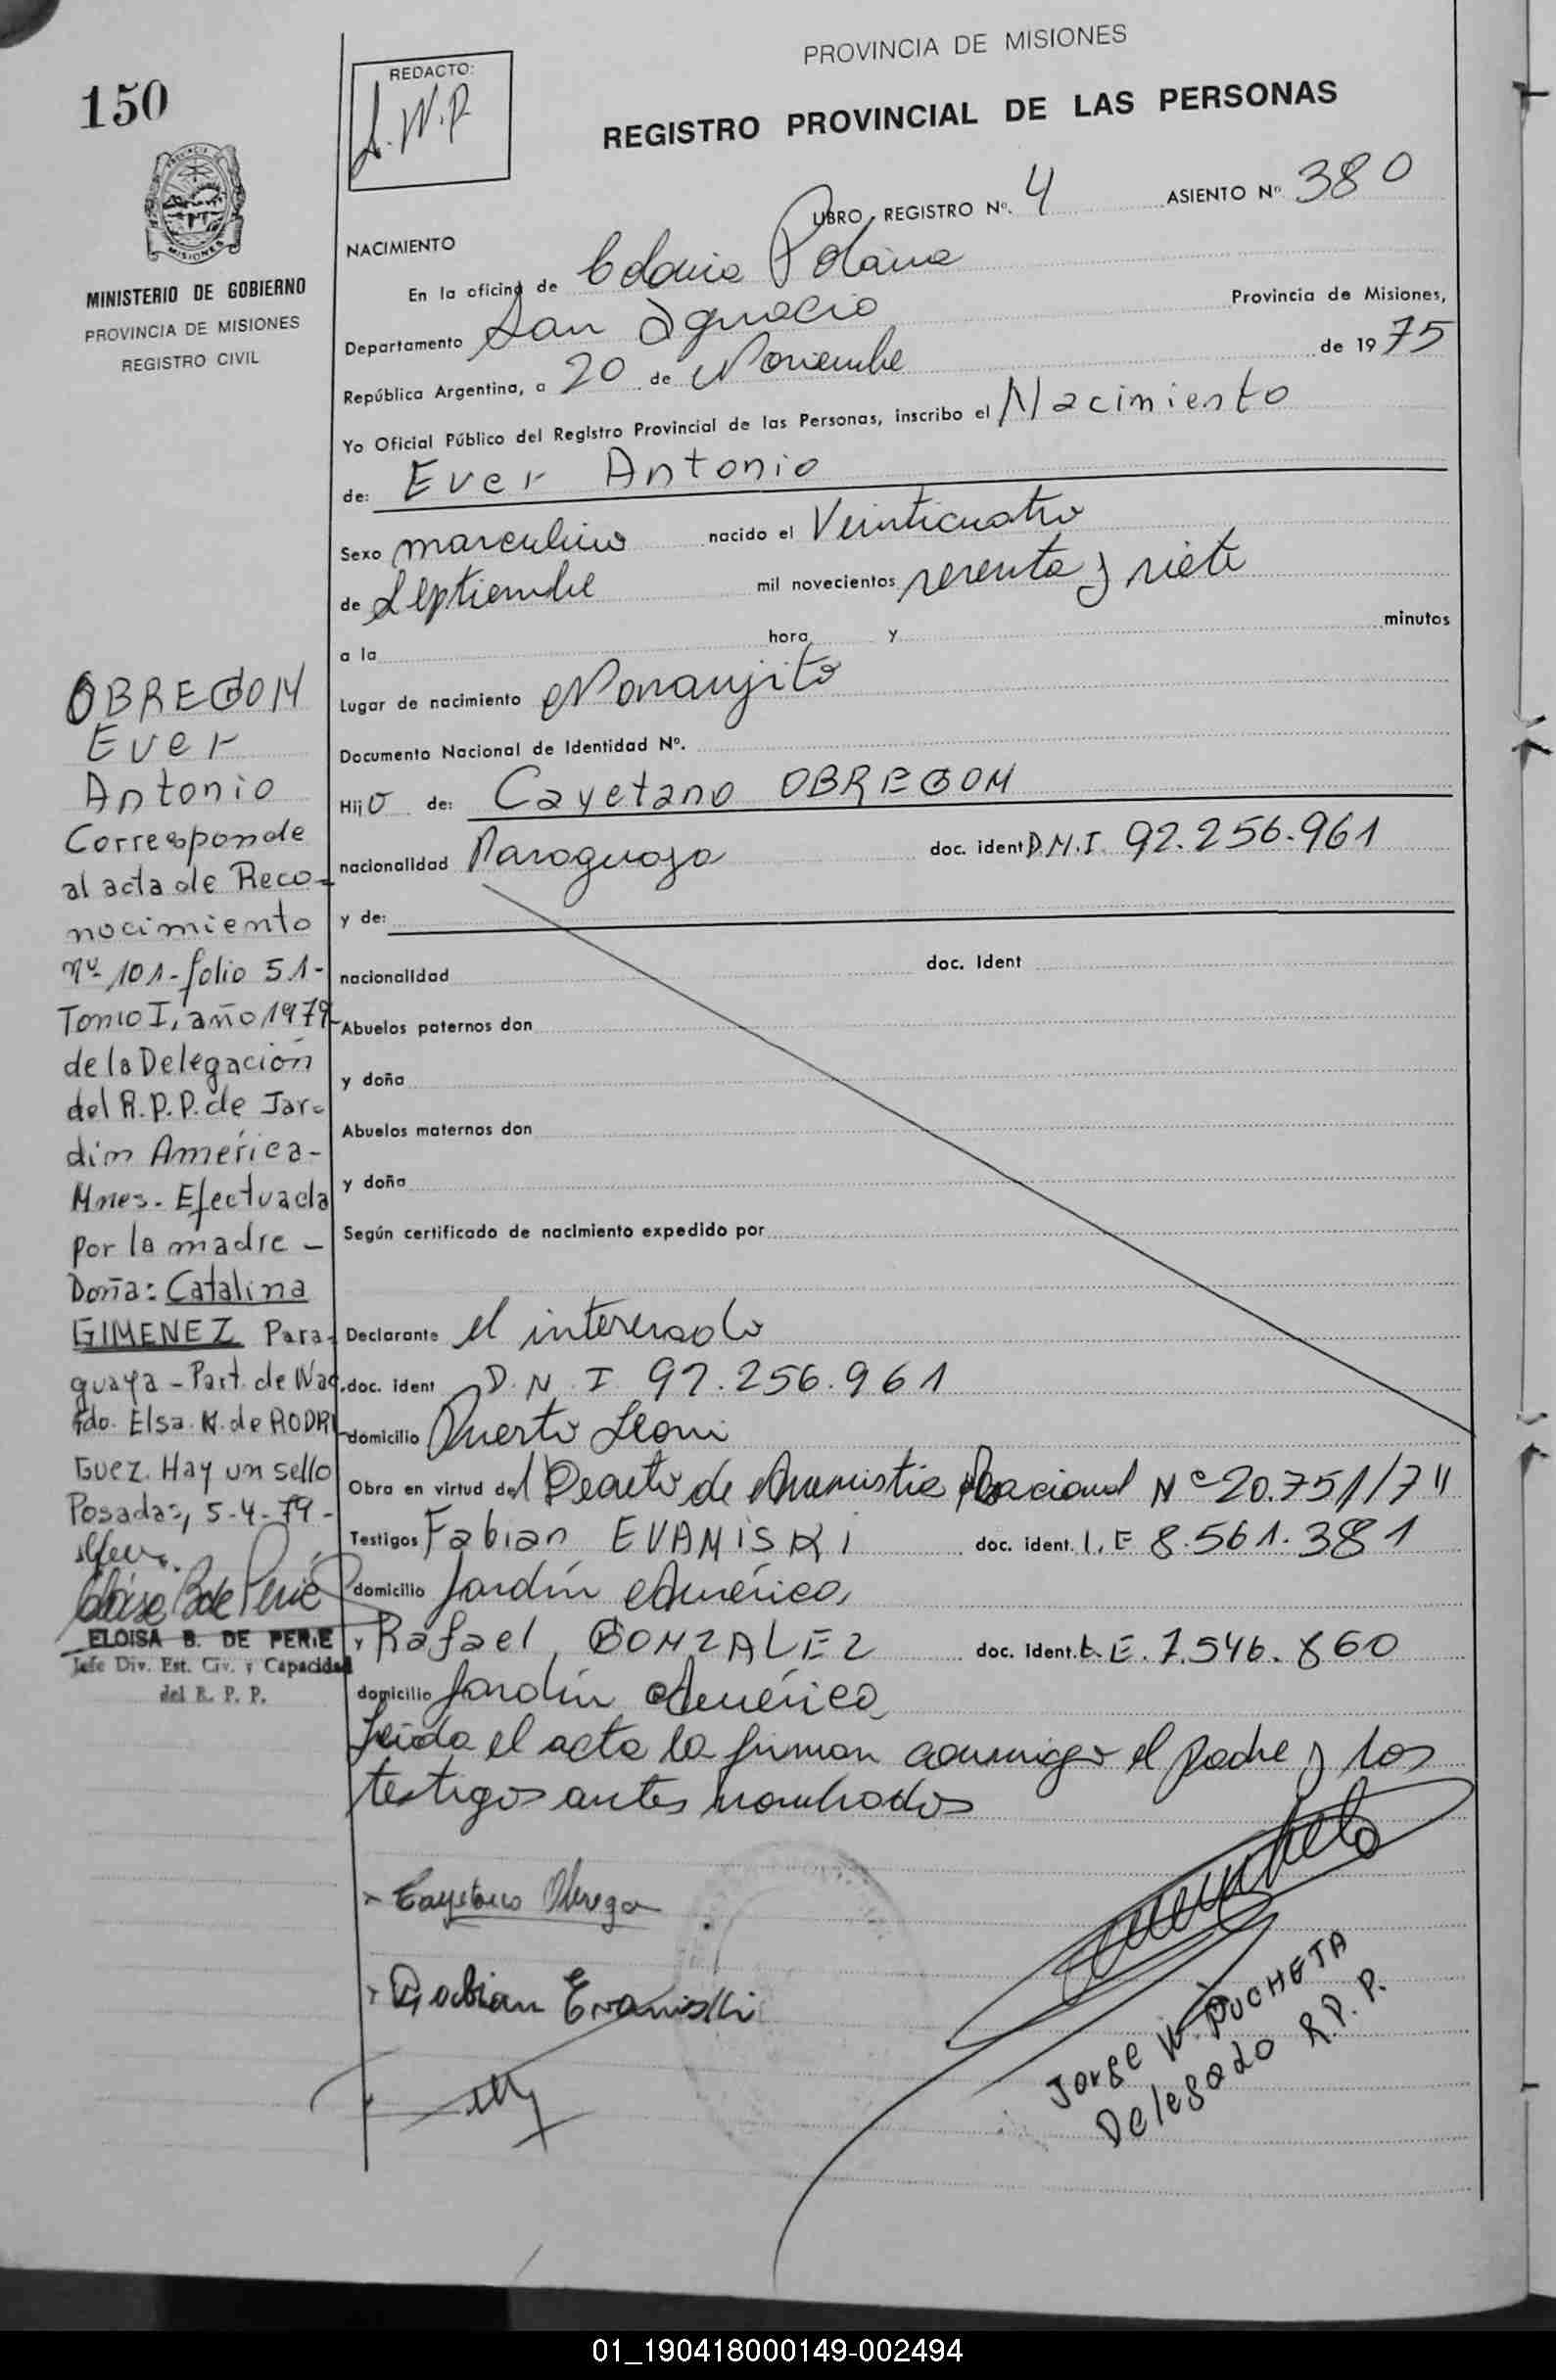 150
REDACTO:
J.W.P
PROVINCIA DE MISIONES
REGISTRO PROVINCIAL DE LAS PERSONAS
PROVINCIA DE
MISIONES
MINISTERIO DE GOBIERNO
PROVINCIA DE MISIONES
REGISTRO CIVIL
LIBRO REGISTRO Nº. 4 ASIENTO Nº 380
NACIMIENTO
En la oficina de Colonia Polana
Departamento San Ignacio Provincia de Misiones,
República Argentina, a 20 de Noviembre de 1975
Yo Oficial Público del Registro Provincial de las Personas, inscribo el Nacimiento
de: Ever Antonio
Sexo masculino nacido el Veinticuatro
de Septiembre mil novecientos sesenta y siete
a la hora y minutos
Lugar de nacimiento Naranjito
Documento Nacional de Identidad Nº.
Hijo de: Cayetano OBREGON
nacionalidad Paraguaya doc. ident D.N.I. 92.256.961
y de:
nacionalidad doc. Ident
Abuelos paternos don
y doña
Abuelos maternos don
y doña
Según certificado de nacimiento expedido por
Declarante el interesado
doc. ident D.N.I. 92.256.961
domicilio Puerto Leoni
Obra en virtud del Decreto de Amnistia Nacional Nº 20.751/7
Testigos Fabian EVANISKI doc. ident. L.E 8.561.381
domicilio Jardín América
y Rafael GONZALEZ doc. ident. L.E. 7.546.860
domicilio Jardín América
Leida el acta la firman conmigo el padre y los
testigos antes nombrados
Cayetano Obregon
Fabian Evaniski
Jorge W. PUCHETA
Delegado R.P.P.
OBREGON
Ever
Antonio
Corresponde
al acta de Reco-
nocimiento
nº 101-folio 51-
Tomo I, año 1979
de la Delegación
del R.P.P. de Jar-
dim América-
Mnes. Efectuada
por la madre -
Doña: Catalina
GIMENEZ Para-
guaya - Part. de Nac.
fdo. Elsa. N. de RODRI
GUEZ. Hay un sello
Posadas, 5-4-79-
Eloisa B de Perié
ELOISA B. DE PERIE
Jefe Div. Est. Civ. y Capacidad
del R. P. P.
01_190418000149-002494